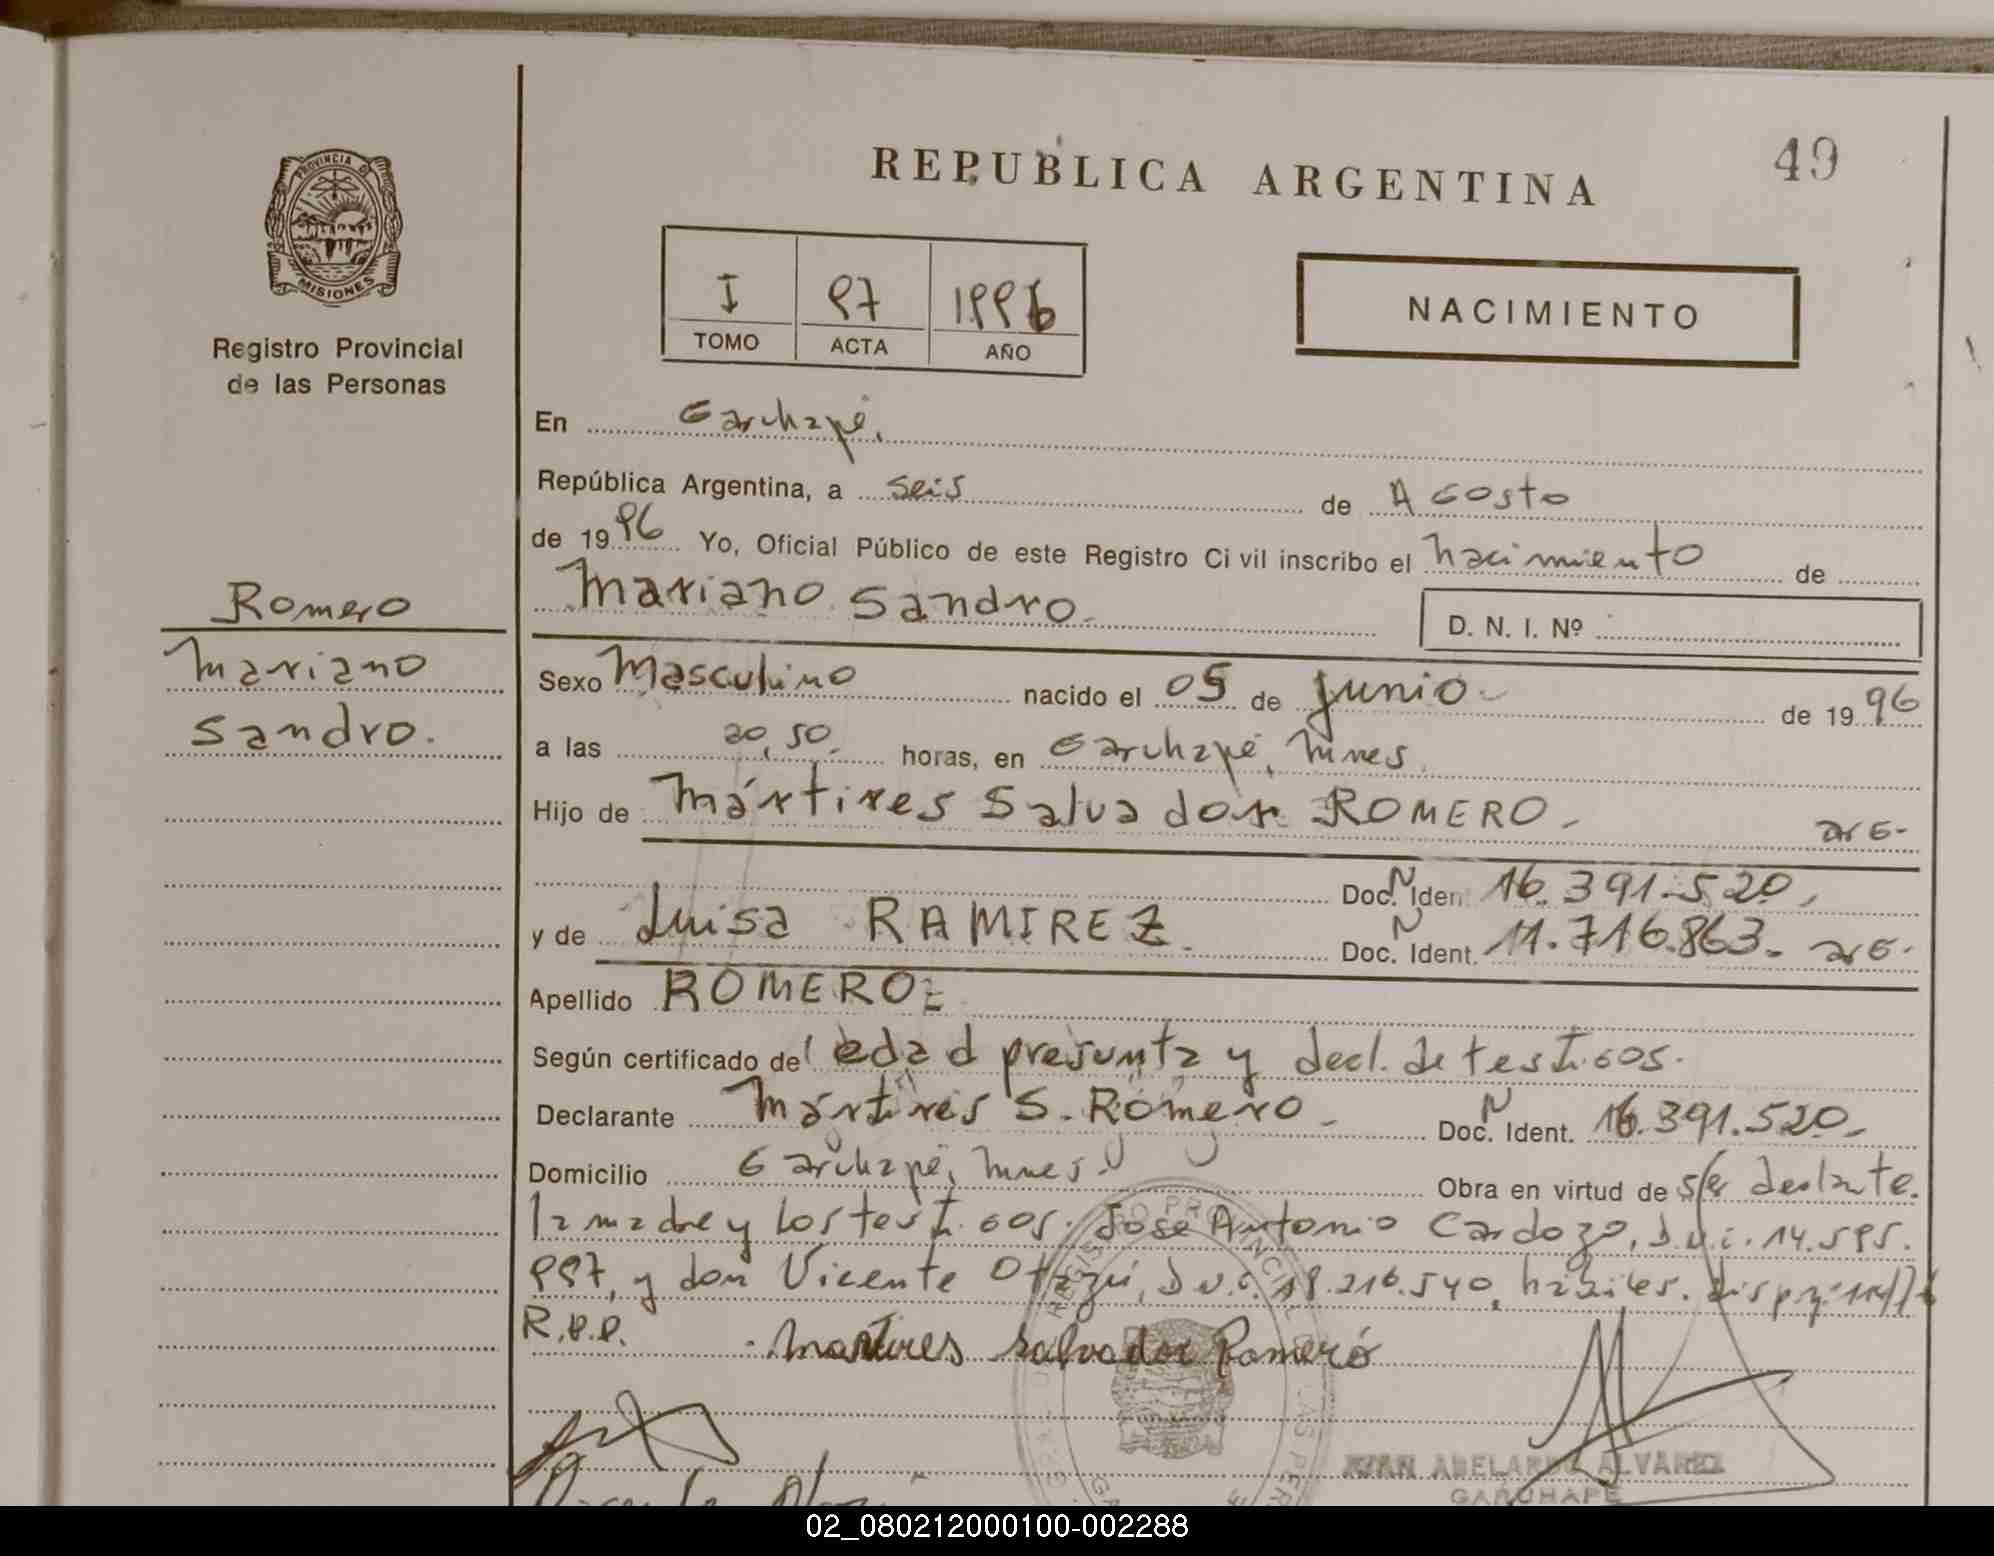 49
REPUBLICA ARGENTINA
PROVINCIA DE
MISIONES
Registro Provincial
de las Personas
I 97 1996
TOMO ACTA AÑO
NACIMIENTO
En Garuhapé.
República Argentina, a seis de Agosto
de 1996 Yo, Oficial Público de este Registro Civil inscribo el nacimiento de
Mariano Sandro.
D. N. I. Nº
Romero
Mariano
Sandro.
Sexo Masculino nacido el 05 de Junio de 1996
a las 20,50. horas, en Garuhapé, Mnes.
Hijo de Mártires Salvador ROMERO. arg.
Doc. N Ident. 16.391.520.
y de Luisa RAMIREZ. Doc. N Ident. 11.716.863. arg.
Apellido ROMERO
Según certificado del edad presunta y decl. de testigos.
Declarante Mártires S. Romero Doc. N Ident. 16.391.520.
Domicilio Garuhapé, Mnes. Obra en virtud de ser declante.
la madre y los testigos. José Antonio Cardozo, D.n.i. 14.595.
997, y don Vicente Otazú, D.n.i. 18.216.540, hábiles.
R.P.P.
Martires Salvador Romeró
JUAN ABELARDO ALVAREZ
GARUHAPE
02_080212000100-002288